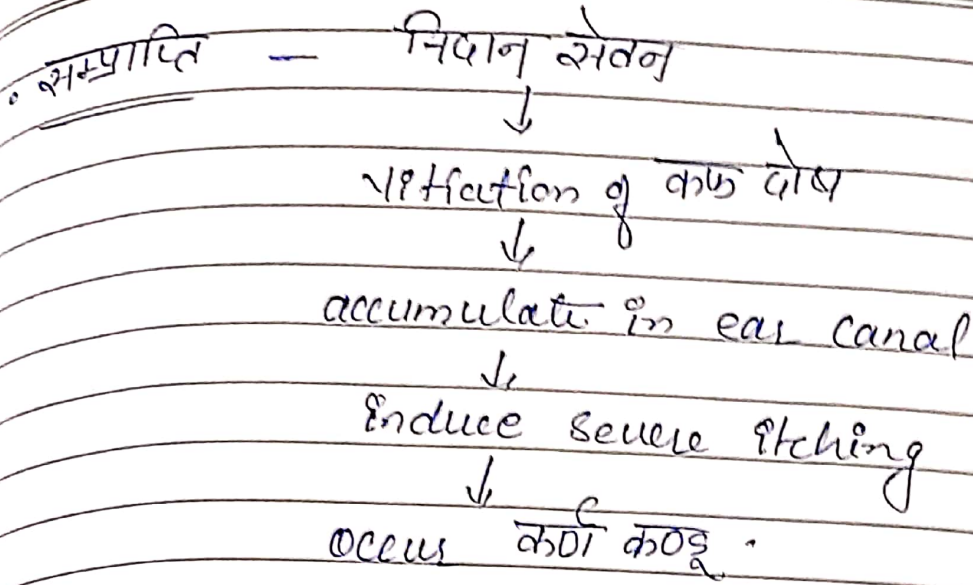 • सम्प्राप्ति — निदान सेवन
↓
vitiation of कफ दोष
↓
accumulate in ear canal
↓
induce severe itching
↓
occur कर्ण कण्डू .